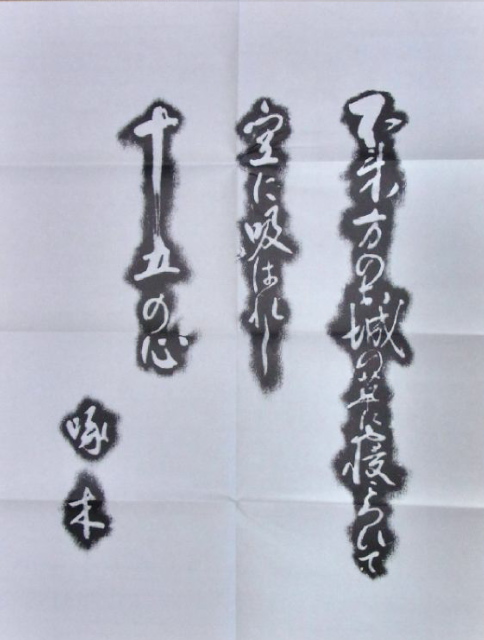 不来方のお城の草に寝ころびて
空に吸はれし
十五の心
啄木